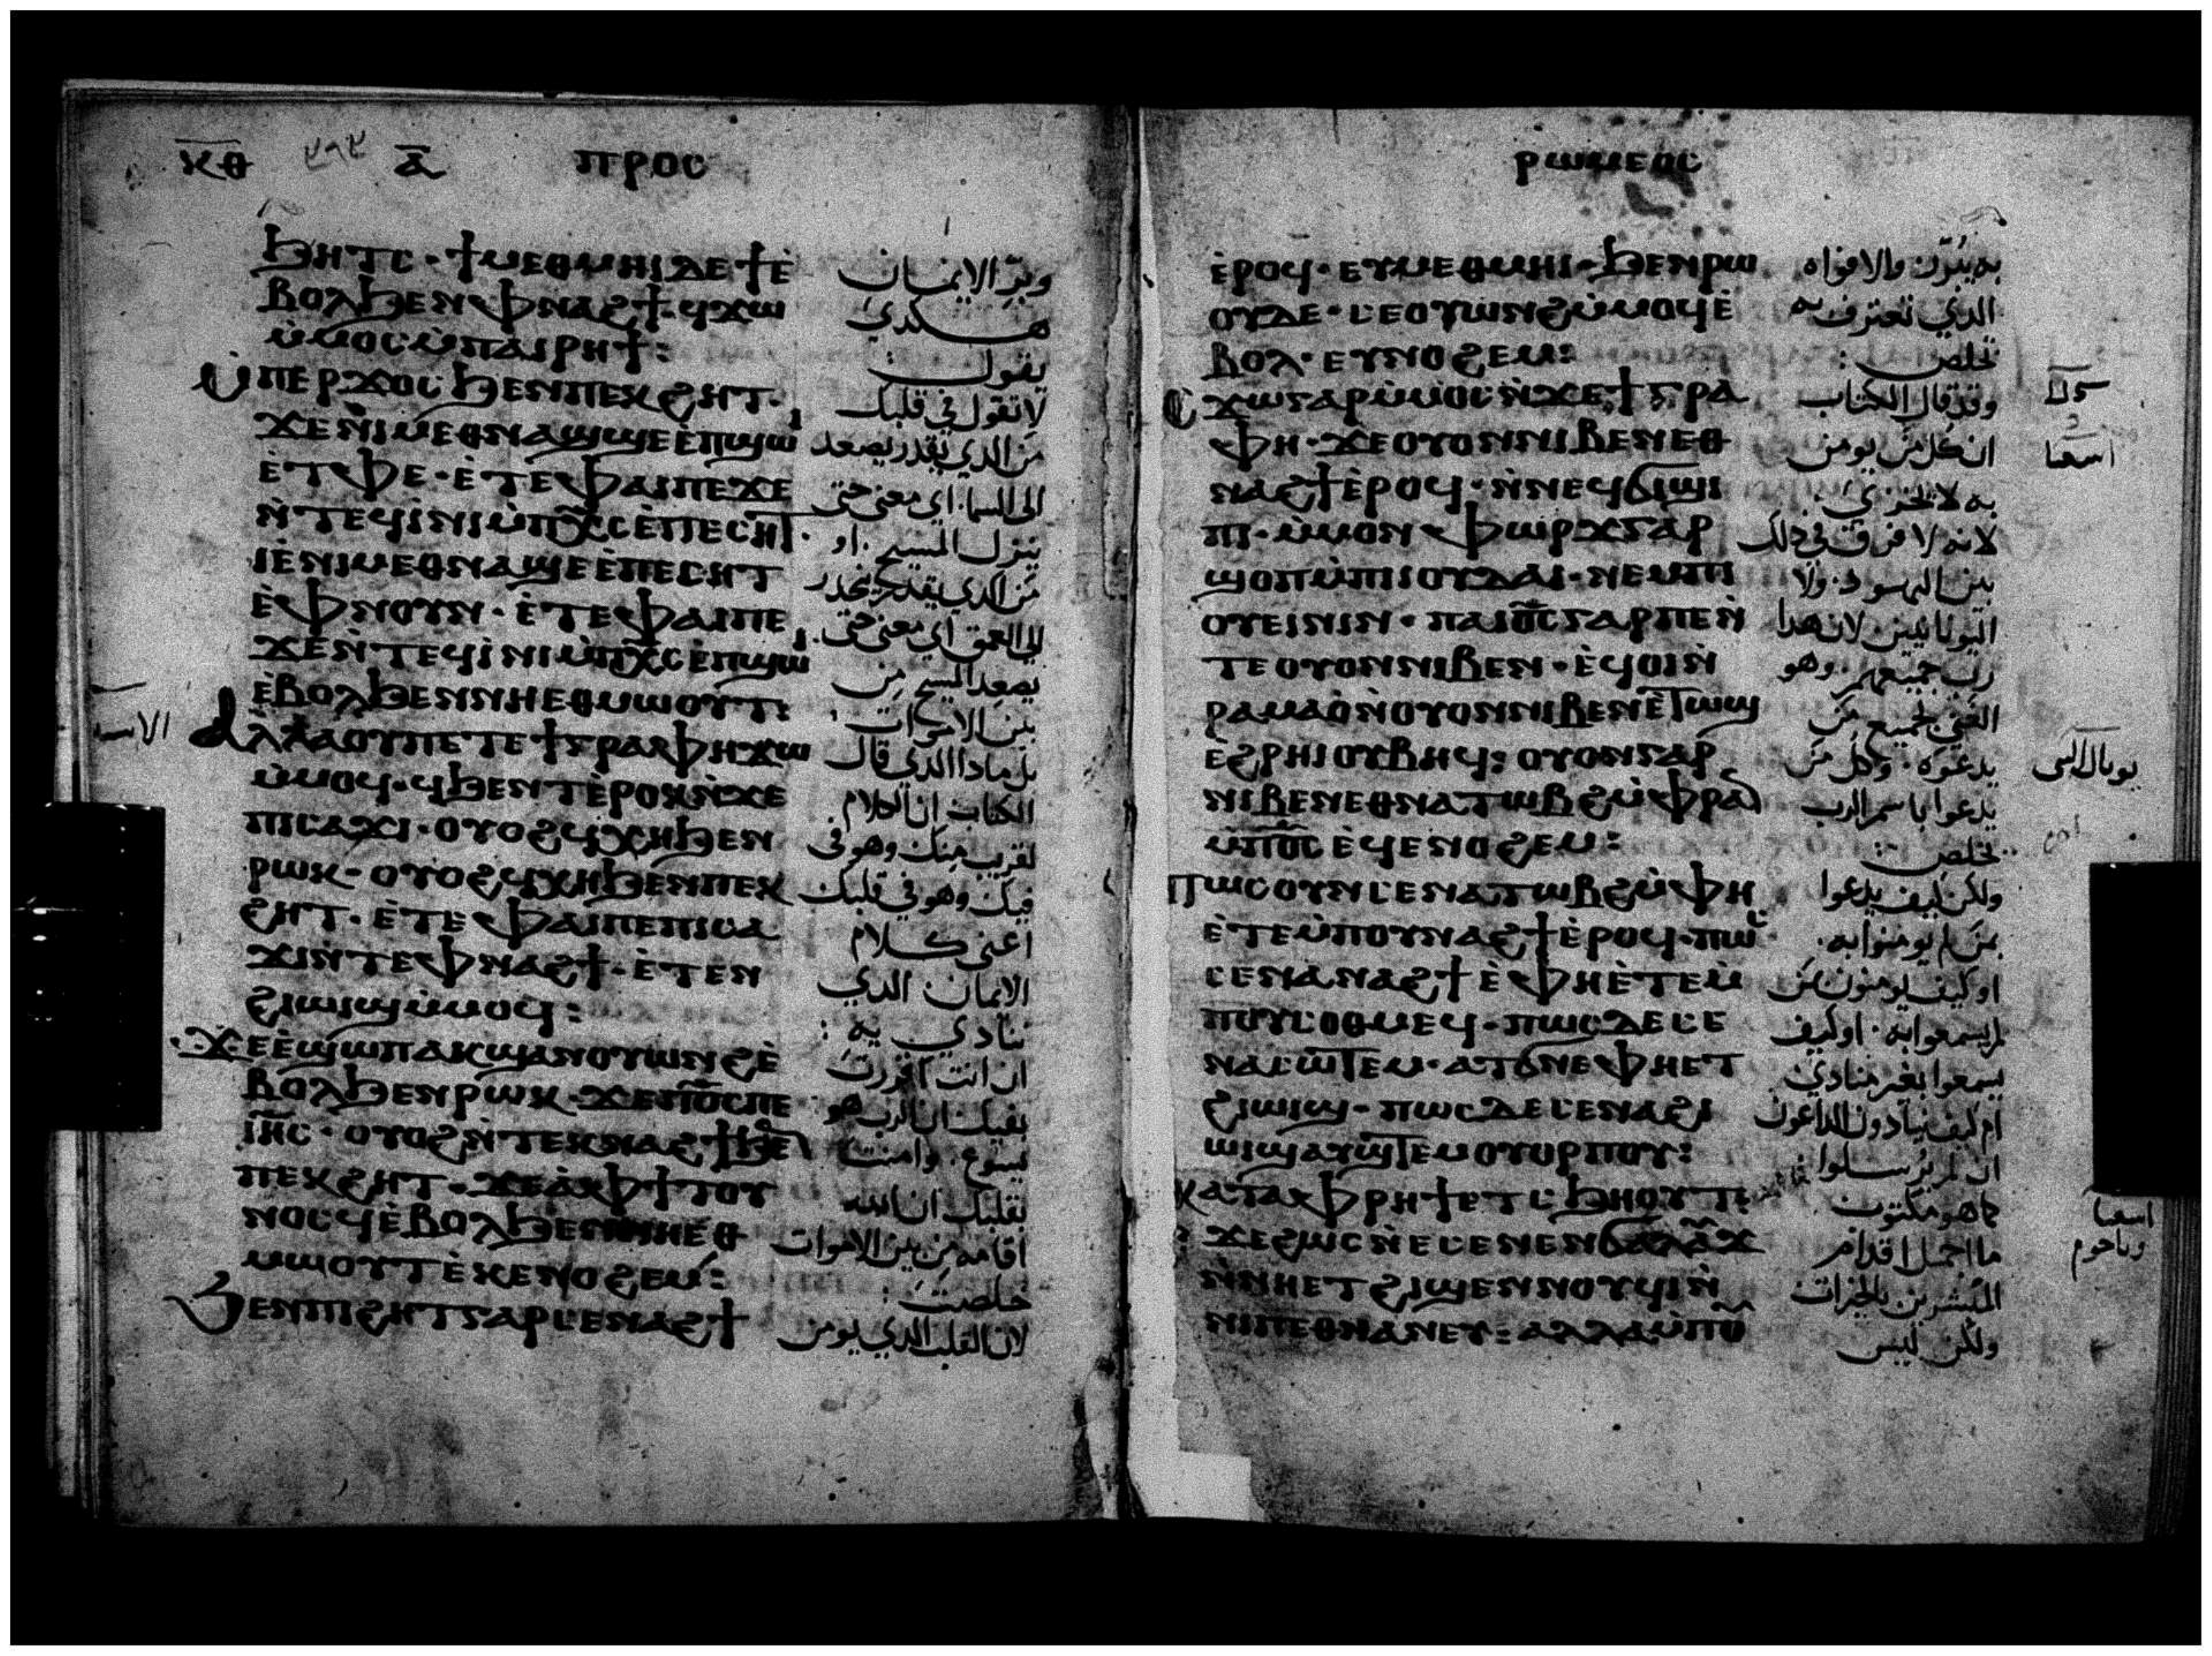 ⲕⲑ ⲁ̅ ⲡⲣⲟⲥ
ϧⲏⲧⲥ · ϯⲙⲉⲑⲙⲏⲓ ⲇⲉ ϯⲉ̀
ⲃⲟⲗϧⲉⲛⲫⲛⲁϩϯ · ϥϫⲱ
ⲙ̀ⲙⲟⲥⲙ̀ⲡⲁⲓⲣⲏϯ :
ⲙ̀ⲡⲉⲣϫⲟⲥϧⲉⲛⲡⲉⲕϩⲏⲧ ·
ϫⲉⲛⲓⲙⲉⲑⲛⲁϣϣⲉⲉ̀ⲡϣⲱⲓ
ⲉ̀ⲧⲫⲉ · ⲉ̀ⲧⲉⲫⲁⲓⲡⲉϫⲉ
ⲛ̀ⲧⲉϥⲓ̀ⲛⲓⲙ̀ⲡⲭ̅ⲥⲉ̀ⲡⲉⲥⲏⲧ ·
ⲓⲉⲛⲓⲙⲉⲑⲛⲁϣⲉⲉ̀ⲡⲉⲥⲏⲧ
ⲉ̀ⲫⲛⲟⲩⲛ · ⲉ̀ⲧⲉⲫⲁⲓⲡⲉ
ϫⲉⲛ̀ⲧⲉϥⲓ̀ⲛⲓⲙ̀ⲡⲭ̅ⲥⲉ̀ⲡϣⲱⲓ
ⲉ̀ⲃⲟⲗϧⲉⲛⲛⲏⲉⲑⲙⲱⲟⲩⲧ :
ⲁⲗⲗⲁⲟⲩⲡⲉⲧⲉϯⲅⲣⲁⲫⲏϫⲱ
ⲙ̀ⲙⲟϥ · ϥϧⲉⲛⲧⲉ̀ⲣⲟⲕⲛ̀ϫⲉ
ⲡⲓⲥⲁϫⲓ · ⲟⲩⲟϩϥⲭⲏϧⲉⲛ
ⲣⲱⲕ · ⲟⲩⲟϩϥⲭⲏϧⲉⲛⲡⲉⲕ
ϩⲏⲧ · ⲉ̀ⲧⲉⲫⲁⲓⲡⲉⲡⲓⲥⲁ
ϫⲓⲛ̀ⲧⲉⲫⲛⲁϩϯ · ⲉ̀ⲧⲉⲛ
ϩⲓⲱⲓϣⲙ̀ⲙⲟϥ :
ϫⲉⲉ̀ϣⲱⲡⲁⲕϣⲁⲛⲟⲩⲱⲛϩⲉ̀
ⲃⲟⲗϧⲉⲛⲣⲱⲕ · ϫⲉⲡ⳪ⲡⲉ
ⲓⲏ̅ⲥ · ⲟⲩⲟϩⲛ̀ⲧⲉⲕⲛⲁϩϯϧⲉⲛ
ⲡⲉⲕϩⲏⲧ · ϫⲉⲁ̀ⲫϯⲧⲟⲩ
ⲛⲟⲥϥⲉ̀ⲃⲟⲗϧⲉⲛⲛⲏⲉⲑ
ⲙⲱⲟⲩⲧⲉ̀ⲕⲉⲛⲟϩⲉⲙ :
ϧⲉⲛⲡⲓϩⲏⲧⲅⲁⲣⲥⲉⲛⲁϩϯ
وبرّ الايمان
هكدي
يقول :
لا تقول في قلبك
من الدي يقدر يصعد
الى السما . اي معنى حتى
ينزل المسيح . او
من الدي يقدر ينحدر
الى العمق اي معنى حتى
يصعد المسيح من
بين الاموات .
بل مادا الدي قال
الكتاب ان الكلام
لقريب منك وهو في
فيك وهو في قلبك
اعني كلام
الايمان الدي
ننادي به :
ان انت اقررت
بفيك ان الرب هو
يسوع . وامنت
بقلبك ان الله
اقامه من بين الاموات
خلصت :
لان القلب الدي يومن
ⲣⲱⲙⲉⲟⲥ
ⲉ̀ⲣⲟϥ · ⲉⲩⲙⲉⲑⲙⲏⲓ · ϧⲉⲛⲣⲱ
ⲟⲩⲇⲉ · ⲥⲉⲟⲩⲱⲛϩⲙ̀ⲙⲟϥⲉ̀
ⲃⲟⲗ · ⲉⲩⲛⲟϩⲉⲙ :
ⲥϫⲱⲅⲁⲣⲙ̀ⲙⲟⲥⲛ̀ϫⲉϯⲅⲣⲁ
ⲫⲏ · ϫⲉⲟⲩⲟⲛⲛⲓⲃⲉⲛⲉⲑ
ⲛⲁϩϯⲉ̀ⲣⲟϥ · ⲛ̀ⲛⲉϥϭⲓϣⲓ
ⲡⲓ · ⲙ̀ⲙⲟⲛⲫⲱⲣϫⲅⲁⲣ
ϣⲟⲡⲙ̀ⲡⲓⲟⲩⲇⲁⲓ · ⲛⲉⲙⲡⲓ
ⲟⲩⲉⲓⲛⲓⲛ · ⲡⲁⲓ⳪ⲅⲁⲣⲡⲉⲛ̀
ⲧⲉⲟⲩⲟⲛⲛⲓⲃⲉⲛ · ⲉ̀ϥⲟⲓⲛ̀
ⲣⲁⲙⲁⲟ̀ⲛ̀ⲟⲩⲟⲛⲛⲓⲃⲉⲛⲉ̀ⲧⲱϣ
ⲉ̀ϩⲣⲏⲓⲟⲩⲃⲏϥ : ⲟⲩⲟⲛⲅⲁⲣ
ⲛⲓⲃⲉⲛⲉⲑⲛⲁⲧⲱⲃϩⲙ̀ⲫⲣⲁⲛ
ⲙ̀ⲡ⳪ⲉ̀ϥⲉⲛⲟϩⲉⲙ :
ⲡⲱⲥⲟⲩⲛⲥⲉⲛⲁⲧⲱⲃϩⲙ̀ⲫⲏ
ⲉ̀ⲧⲉⲙ̀ⲡⲟⲩⲛⲁϩϯⲉ̀ⲣⲟϥ · ⲡⲱⲥ
ⲥⲉⲛⲁⲛⲁϩϯⲉ̀ⲫⲏⲉ̀ⲧⲉⲙ̀
ⲡⲟⲩⲥⲟⲑⲙⲉϥ · ⲡⲱⲥⲇⲉⲥⲉ
ⲛⲁⲥⲱⲧⲉⲙ · ⲁⲧϭⲛⲉⲫⲏⲉⲧ
ϩⲓⲱⲓϣ · ⲡⲱⲥⲇⲉⲥⲉⲛⲁϩⲓ
ⲱⲓϣⲁⲩϣⲧⲉⲙⲟⲩⲟⲣⲡⲟⲩ :
ⲕⲁⲧⲁⲫⲣⲏϯⲉⲧⲥϧⲏⲟⲩⲧ :
ϫⲉϩⲱⲥⲛⲉⲥⲉⲛⲉⲛϭⲁⲗⲁⲩϫ
ⲛ̀ⲛⲏⲉⲧϩⲓϣⲉⲛⲛⲟⲩϥⲓⲛ̀
ⲛⲓⲡⲉⲑⲛⲁⲛⲉⲩ : ⲁⲗⲗⲁⲙ̀ⲡⲟ
به يبرّر والافواه
الدي تعترف به
تخلص :
وقد قال الكتاب
ان كل من يومن
به لا يخزي .
لانه لا فرق في دلك
بين اليهود . ولا
اليونانيين لان هدا
رب جميعهم . وهو
الغني لجميع من
يدعوه . وكل من
يدعوا باسم الرب
يخلص :
ولكن كيف يدعوا
بمن لم يومنوا به .
او كيف يومنون بمن
لم يسمعوا به . او كيف
يسمعوا بغير منادي
ام كيف ينادون الداعون
ان لم يرسلوا :
كما هو مكتوب
ما اجمل اقدام
المبشرين بالخيرات
ولكن ليس
اشعيا
اشعيا
وناحوم